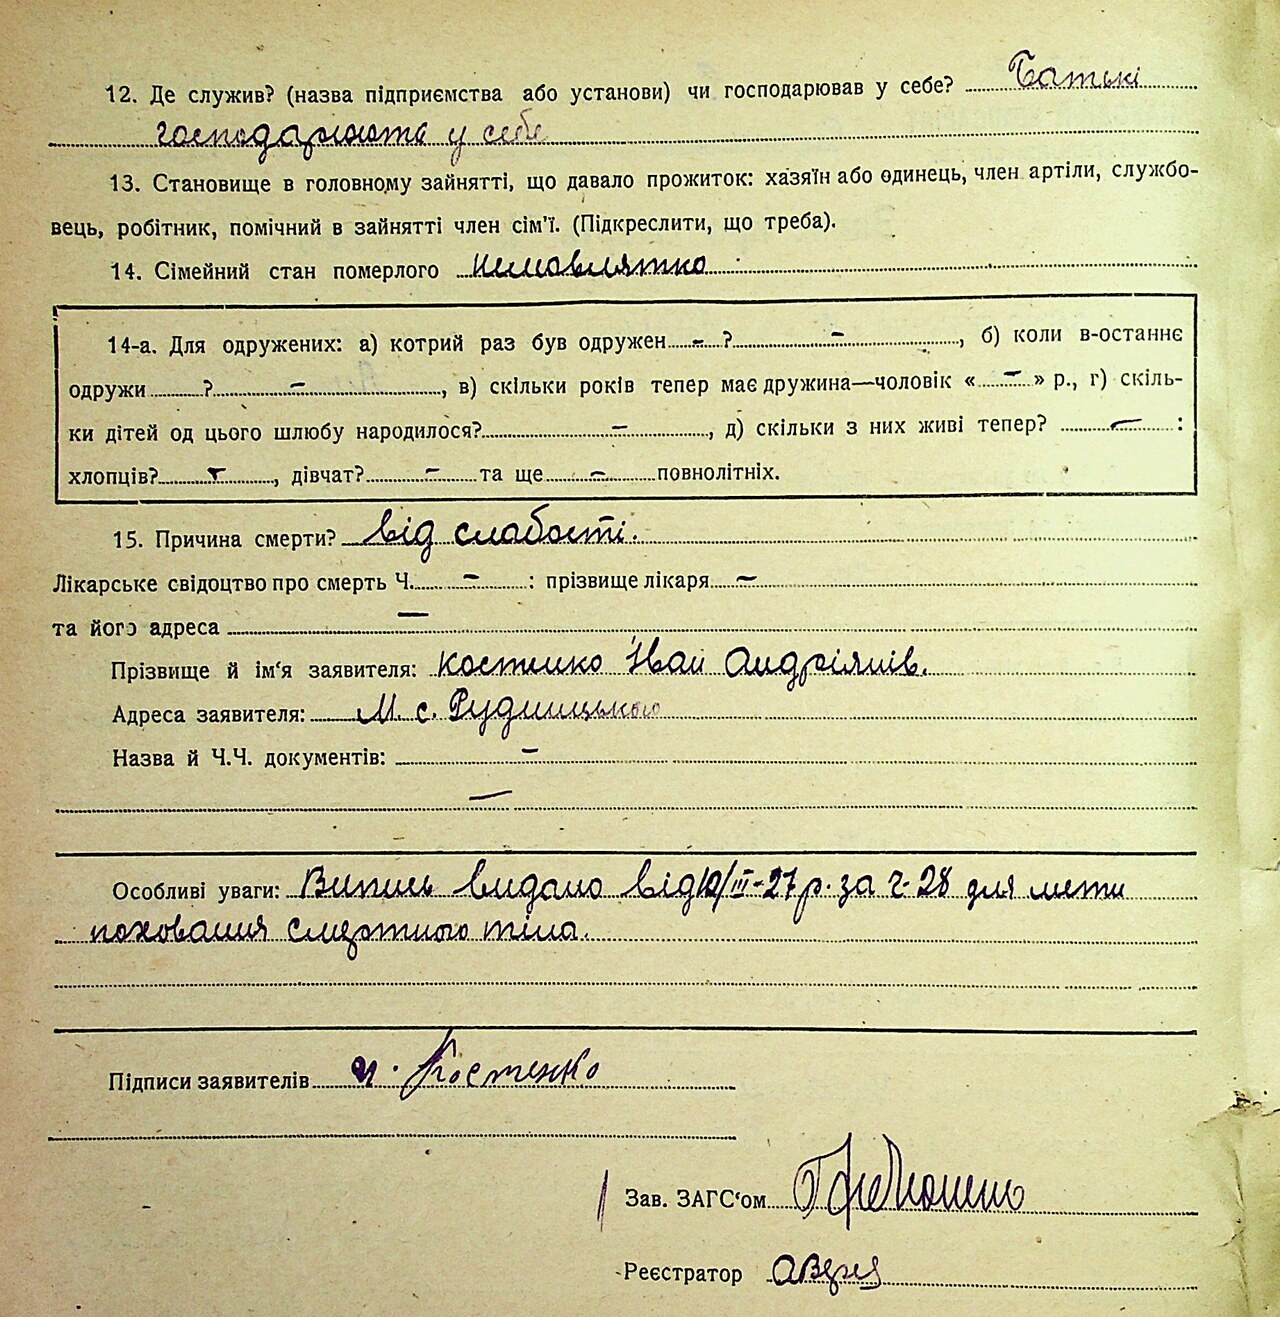 12. Де служив? (назва підприємства або установи) чи господарював у себе? Батьки
господарюють у себе
13. Становище в головному зайнятті, що давало прожиток: хазяїн або одинець, член артіли, службо-
вець, робітник, помічний в зайнятті член сім'ї. (Підкреслити, що треба).
14. Сімейний стан померлого немовлятко
14-а. Для одружених: а) котрий раз був одружен – ? –, б) коли в-останнє
одружи ? –, в) скільки років тепер має дружина—чоловік « – » р., г) скіль-
ки дітей од цього шлюбу народилося? –, д) скільки з них живі тепер? – :
хлопців? –, дівчат? – та ще – повнолітніх.
15. Причина смерти? від слабості.
Лікарське свідоцтво про смерть Ч. – : прізвище лікаря –
та його адреса –
Прізвище й ім'я заявителя: Костенко Іван Андріянів.
Адреса заявителя: М. с. Рудницького
Назва й Ч.Ч. документів: –
–
Особливі уваги: Випись видано від 12/III-27 р. за ч-28 для мети
поховання смертного тіла.
Підписи заявителів И. Костенко
Зав. ЗАГС'ом
Реєстратор